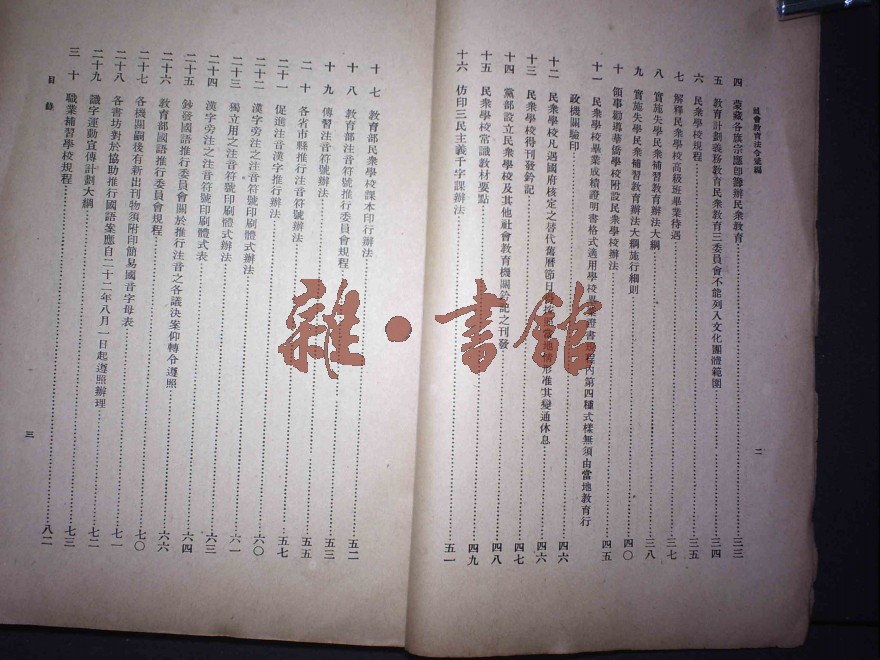 社會教育法令彙編
四 蒙藏各旗宗應即籌辦民衆教育 三三
五 教育計劃義務教育民衆教育三委員會不能列入文化團體範圍 三四
六 民衆學校規程 三五
七 解釋民衆學校高級班畢業待遇 三七
八 實施失學民衆補習教育辦法大綱 三八
九 實施失學民衆補習教育辦法大綱施行細則 四〇
十 領事勸導華僑學校附設民衆學校辦法 四五
十一 民衆學校畢業成績證明書格式適用學校畢業證書規程內第四種式樣無須由當地教育行
政機關驗印 四六
十二 民衆學校凡遇國府核定之替代舊曆節日 形准其變通休息 四六
十三 民衆學校得刊發鈐記 四七
十四 黨部設立民衆學校及其他社會教育機關鈐記之刊發 四八
十五 民衆學校常識教材要點 四九
十六 仿印三民主義千字課辦法 五一
二
十七 教育部民衆學校課本印行辦法 五二
十八 教育部注音符號推行委員會規程 五三
十九 傳習注音符號辦法 五五
二十 各省市縣推行注音符號辦法 五五
二十一 促進注音漢字推行辦法 五七
二十二 漢字旁注之注音符號印刷體式辦法 六〇
二十三 獨立用之注音符號印刷體式辦法 六一
二十四 漢字旁注之注音符號印刷體式表 六三
二十五 鈔發國語推行委員會關於推行注音之各議決案仰轉令遵照 六四
二十六 教育部國語推行委員會規程 六六
二十七 各機關嗣後有新出刊物須附印簡易國音字母表 七〇
二十八 各書坊對於協助推行國語案應自二十二年八月一日起遵照辦理 七一
二十九 識字運動宣傳計劃大綱 七二
三十 職業補習學校規程 七三
八二
目錄
三
雜·書館